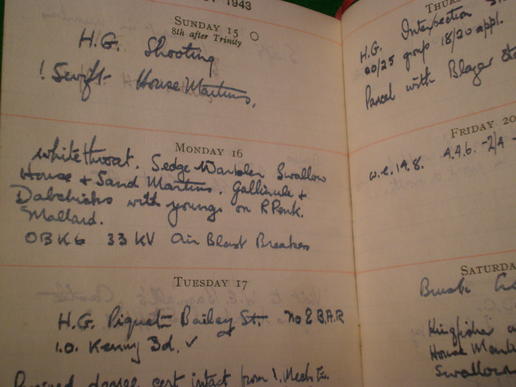 1943
SUNDAY 15
8th after Trinity
H.G. Shooting
! Swift House Martins.
MONDAY 16
Whitethroat. Sedge Warbler Swallow
House & Sand Martins. Gallinule &
Dabchicks with youngs on R Penk.
Mallard.
OBK6 33 KV Air Blast Breakers
TUESDAY 17
H.G. Piquet Bailey St. No 2 B.A.R
1.0. Kenny 3d. ✓
cert intact from I. Mech Eng.
THURS
H.G. Intersection
20/25 group 18/20 appl.
Parcel with Blazer
FRIDAY 20
w.e. 14.8. 4.4.6. -2/4 -
SATURDA
Kingfisher
House Mart
Swallow